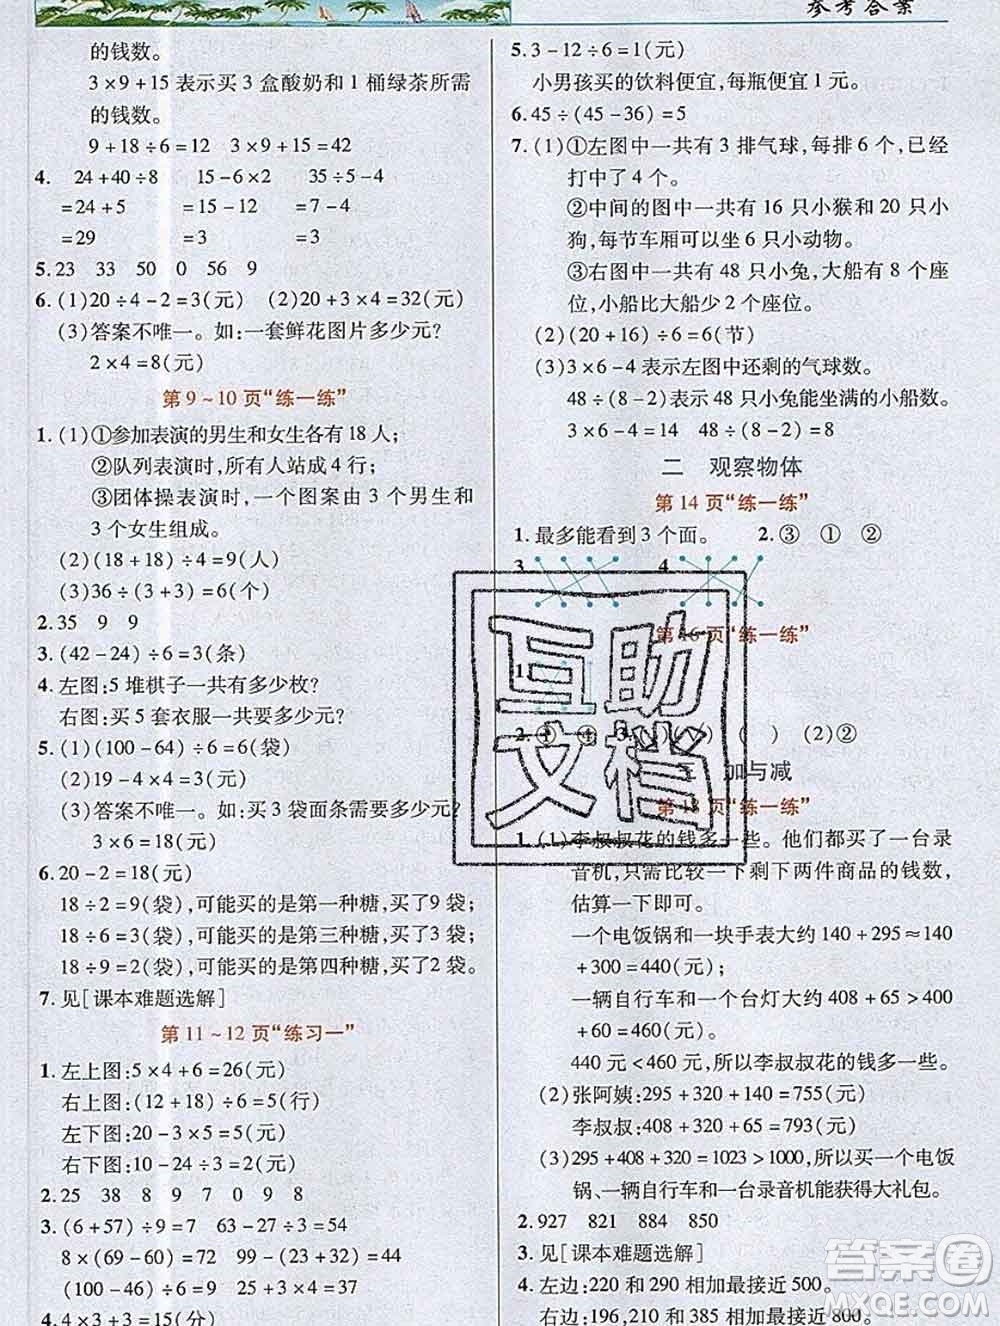 参考答案
的钱数。
3×9+15 表示买 3 盒酸奶和 1 桶绿茶所需
的钱数。
9+18÷6=12 3×9+15=42
4. 24+40÷8 15-6×2 35÷5-4
=24+5 =15-12 =7-4
=29 =3 =3
5. 23 33 50 0 56 9
6. (1)20÷4-2=3(元) (2)20+3×4=32(元)
(3)答案不唯一。如:一套鲜花图片多少元?
2×4=8(元)
第 9~10 页“练一练”
1. (1)①参加表演的男生和女生各有 18 人;
②队列表演时,所有人站成 4 行;
③团体操表演时,一个图案由 3 个男生和
3 个女生组成。
(2)(18+18)÷4=9(人)
(3)36÷(3+3)=6(个)
2. 35 9 9
3. (42-24)÷6=3(条)
4. 左图:5 堆棋子一共有多少枚?
右图:买 5 套衣服一共要多少元?
5. (1)(100-64)÷6=6(袋)
(2)19-4×4=3(元)
(3)答案不唯一。如:买 3 袋面条需要多少元?
3×6=18(元)
6. 20-2=18(元)
18÷2=9(袋),可能买的是第一种糖,买了9 袋;
18÷6=3(袋),可能买的是第三种糖,买了 3 袋;
18÷9=2(袋),可能买的是第四种糖,买了 2 袋。
7. 见[课本难题选解]
第 11~12 页“练习一”
1. 左上图:5×4+6=26(元)
右上图:(12+18)÷6=5(行)
左下图:20-3×5=5(元)
右下图:10-24÷3=2(元)
2. 25 38 8 9 5 8
3. (6+57)÷9=7 63-27÷3=54
8×(69-60)=72 99-(32+32)=35
(100-46)÷6=9 (25-14)+1=37
4. 4×3+3=15(分)
5. 3-12÷6=1(元)
小男孩买的饮料便宜,每瓶便宜 1 元。
6. 45÷(45-36)=5
7. (1)①左图中一共有 3 排气球,每排 6 个,已经
打中了 4 个。
②中间的图中一共有 16 只小猴和 20 只小
狗,每节车厢可以坐 6 只小动物。
③右图中一共有 48 只小兔,大船有 8 个座
位,小船比大船少 2 个座位。
(2)(20+16)÷6=6(节)
(3)3×6-4 表示左图中还剩的气球数。
48÷(8-2)表示 48 只小兔能坐满的小船数。
3×6-4=14 48÷(8-2)=8
二 观察物体
第 14 页“练一练”
1. 最多能看到 3 个面。 2. ③ ① ②
3. 4.
第 16 页“练一练”
1.
2. ① ④ 3. ( ) (2)②
加与减
第 18 页“练一练”
1. (1)李叔叔花的钱多一些。他们都买了一台录
音机,只需比较一下剩下两件商品的钱数,
估算一下即可。
一个电饭锅和一块手表大约 140+295≈140
+300=440(元);
一辆自行车和一个台灯大约 408+65>400
+60=460(元)。
440 元<460 元,所以李叔叔花的钱多一些。
(2)张阿姨:295+320+140=755(元)
李叔叔:408+320+65=793(元)
(3)295+408+320=1023>1000,所以买一个电饭
锅、一辆自行车和一台录音机能获得大礼包。
2. 927 821 884 850
3. 见[课本难题选解]
4. 左边:220 和 290 相加最接近 500。
右边:196,210 和 385 相加最接近 800。
互助
文档
答案圈
MXQE.COM